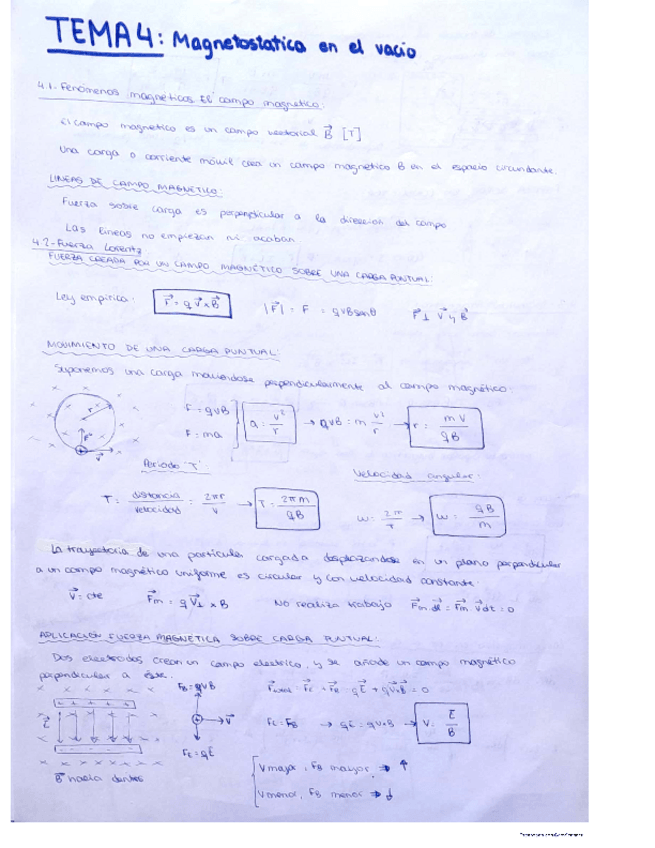 TEMA 4: Magnetostatica en el vacio
4.1.- Fenómenos magnéticos El campo magnetico:
El campo magnetico es un campo vectorial B⃗ [T]
Una carga o corriente móvil crea un campo magnetico B en el espacio circundante.
LINEAS DE CAMPO MAGNETICO:
Fuerza sobre carga es perpendicular a la direccion del campo
Las lineas no empiezan ni acaban
4.2-Fuerza Lorentz
FUERZA CREADA POR UN CAMPO MAGNÉTICO SOBRE UNA CARGA PUNTUAL:
Ley empirica: F⃗ = q v⃗ x B⃗ |F⃗| = F = qvBsenθ F⃗ ⊥ v⃗ y B⃗
MOVIMIENTO DE UNA CARGA PUNTUAL:
Suponemos una carga moviendose perpendicularmente al campo magnético:
F = qvB
F = ma
a = v²/r → qvB = m v²/r → r = mv/qB
Periodo "T":
Velocidad angular:
T = distancia/velocidad = 2πr/v → T = 2πm/qB
w = 2π/T → w = qB/m
La trayectoria de una particula cargada desplazandose en un plano perpendicular
a un campo magnético uniforme es circular y con velocidad constante.
v⃗ = cte F⃗m = q v⃗⊥ x B No realiza trabajo F⃗m dl⃗ = F⃗m v⃗ dt = 0
APLICACION FUERZA MAGNETICA SOBRE CARGA PUNTUAL:
Dos electrodos crean un campo electrico, y se añade un campo magnético
perpendicular a éste.
FB = qvB
E⃗
v⃗
FE = qE
B⃗ hacia dentro
= F⃗E + F⃗B = qE⃗ + qv⃗xB⃗ = 0
FE = FB → qE = qv·B → v = E/B
v mayor, FB mayor → ↑
v menor, FB menor → ↓